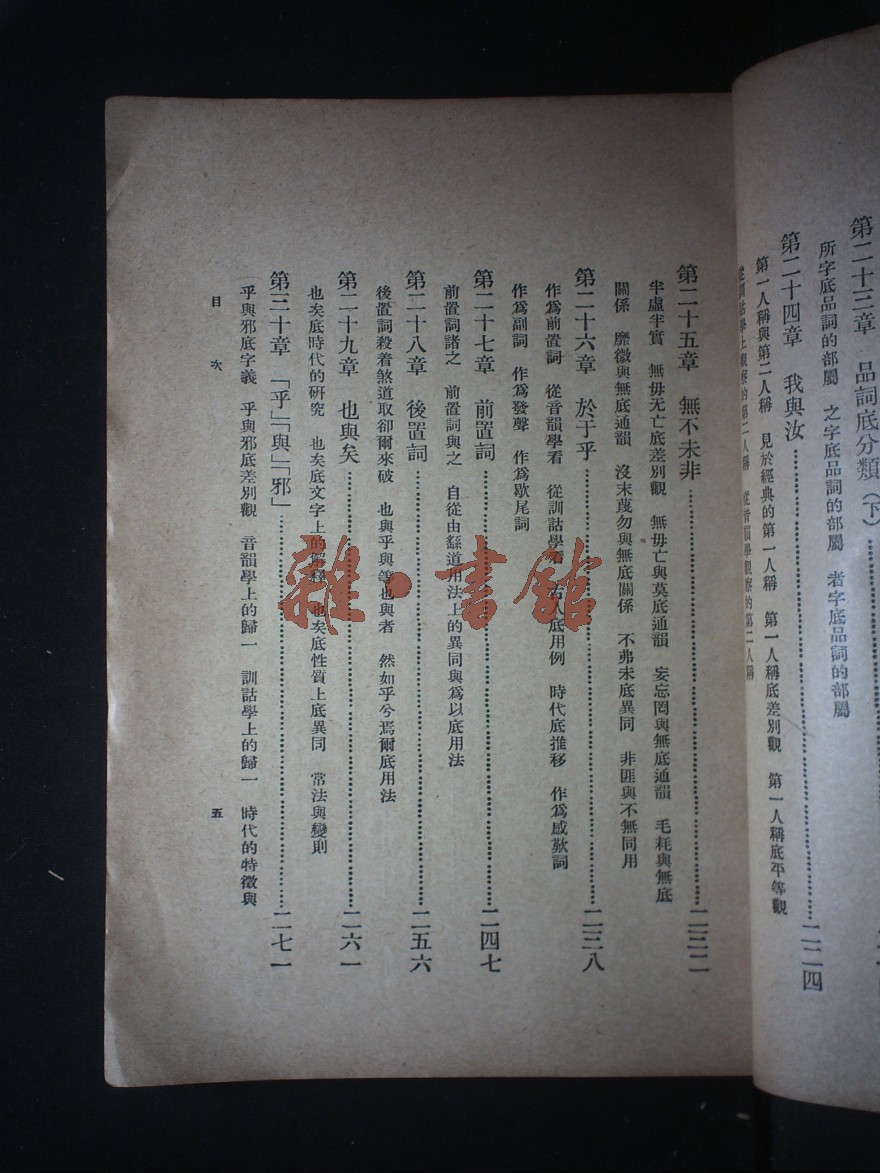 第二十三章　品詞底分類（下）
所字底品詞的部屬　之字底品詞的部屬　者字底品詞的部屬
第二十四章　我與汝……二二四
第一人稱與第二人稱　見於經典的第一人稱　第一人稱底差別觀　第一人稱底平等觀
從訓詁學上觀察的第二人稱　從音韻學觀察的第二人稱
第二十五章　無不未非……二三二
半虛半實　無毋无亡底差別觀　無毋亡與莫底通韻　妄忘罔與無底通韻　毛耗與無底
關係　靡微與無底通韻　沒末蔑勿與無底關係　不弗未底異同　非匪與不無同用
第二十六章　於于乎……二三八
作爲前置詞　從音韻學看　從訓詁學看　古人底用例　時代底推移　作爲感歎詞
作爲副詞　作爲發聲　作爲歇尾詞
第二十七章　前置詞……二四七
前置詞諸之　前置詞與之　自從由繇道用法上的異同與爲以底用法
第二十八章　後置詞……二五六
後置詞殺着煞道取卻爾來破　也與乎與等也與者　然如乎兮焉爾底用法
第二十九章　也與矣……二六一
也矣底時代的硏究　也矣底文字上的解釋　也矣底性質上底異同　常法與變則
第三十章　「乎」「與」「邪」……二七一
乎與邪底字義　乎與邪底差別觀　音韻學上的歸一　訓詁學上的歸一　時代的特徵與
目　次　五
雜·書館